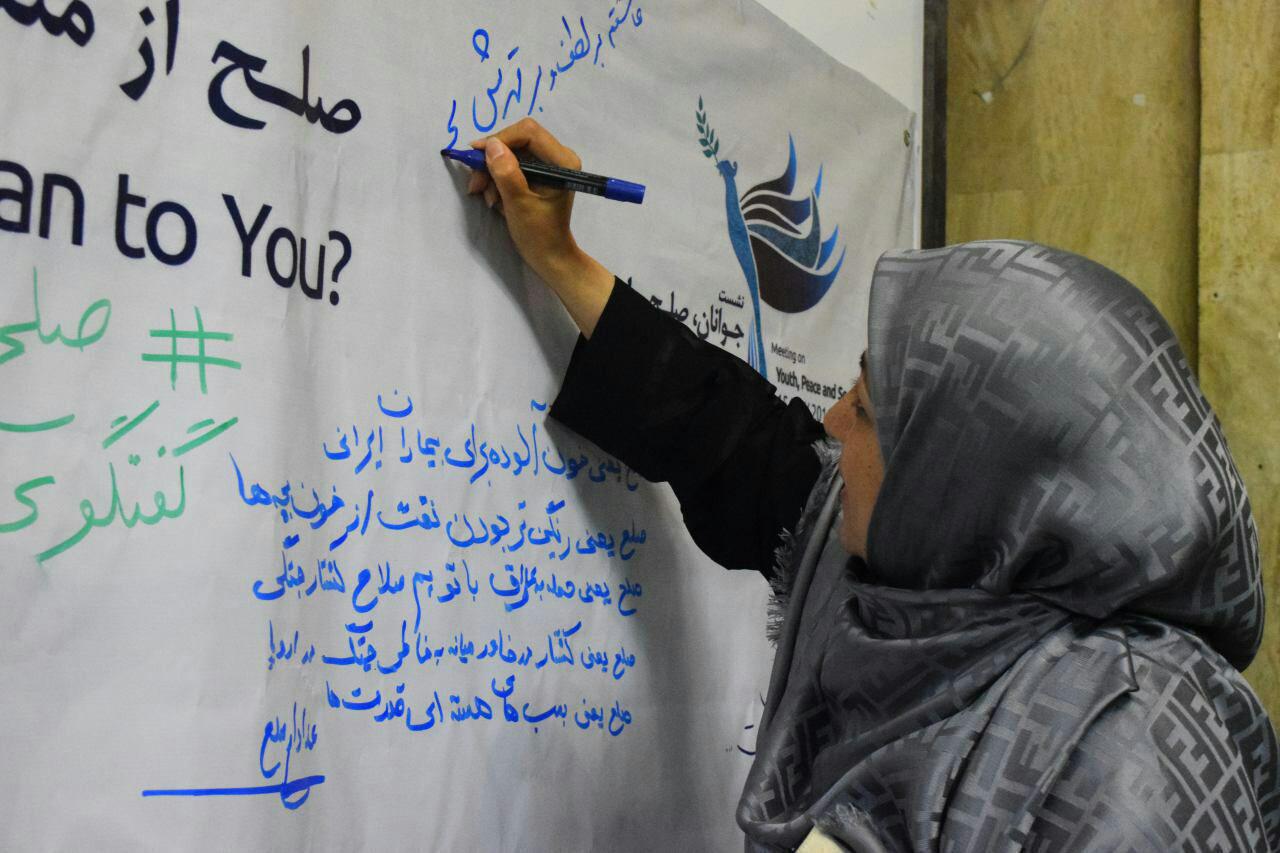 صلح از
an to You?
عاشقم بر لطف و بر قهرش
# صلح
گفتگوی
نشست
جوانان، صلح
Meeting on
Youth, Peace and Se
یعنی خون آلوده برای بیماران ایرانی
صلح یعنی رنگین تر بودن نفت از خون بچه ها
صلح یعنی حمله به عراق با توهم سلاح کشتار جمعی
صلح یعنی کشتار در خاور میانه به خاطر جنگ در اروپا
صلح یعنی بمب های هسته ای قدرت ها
صلح